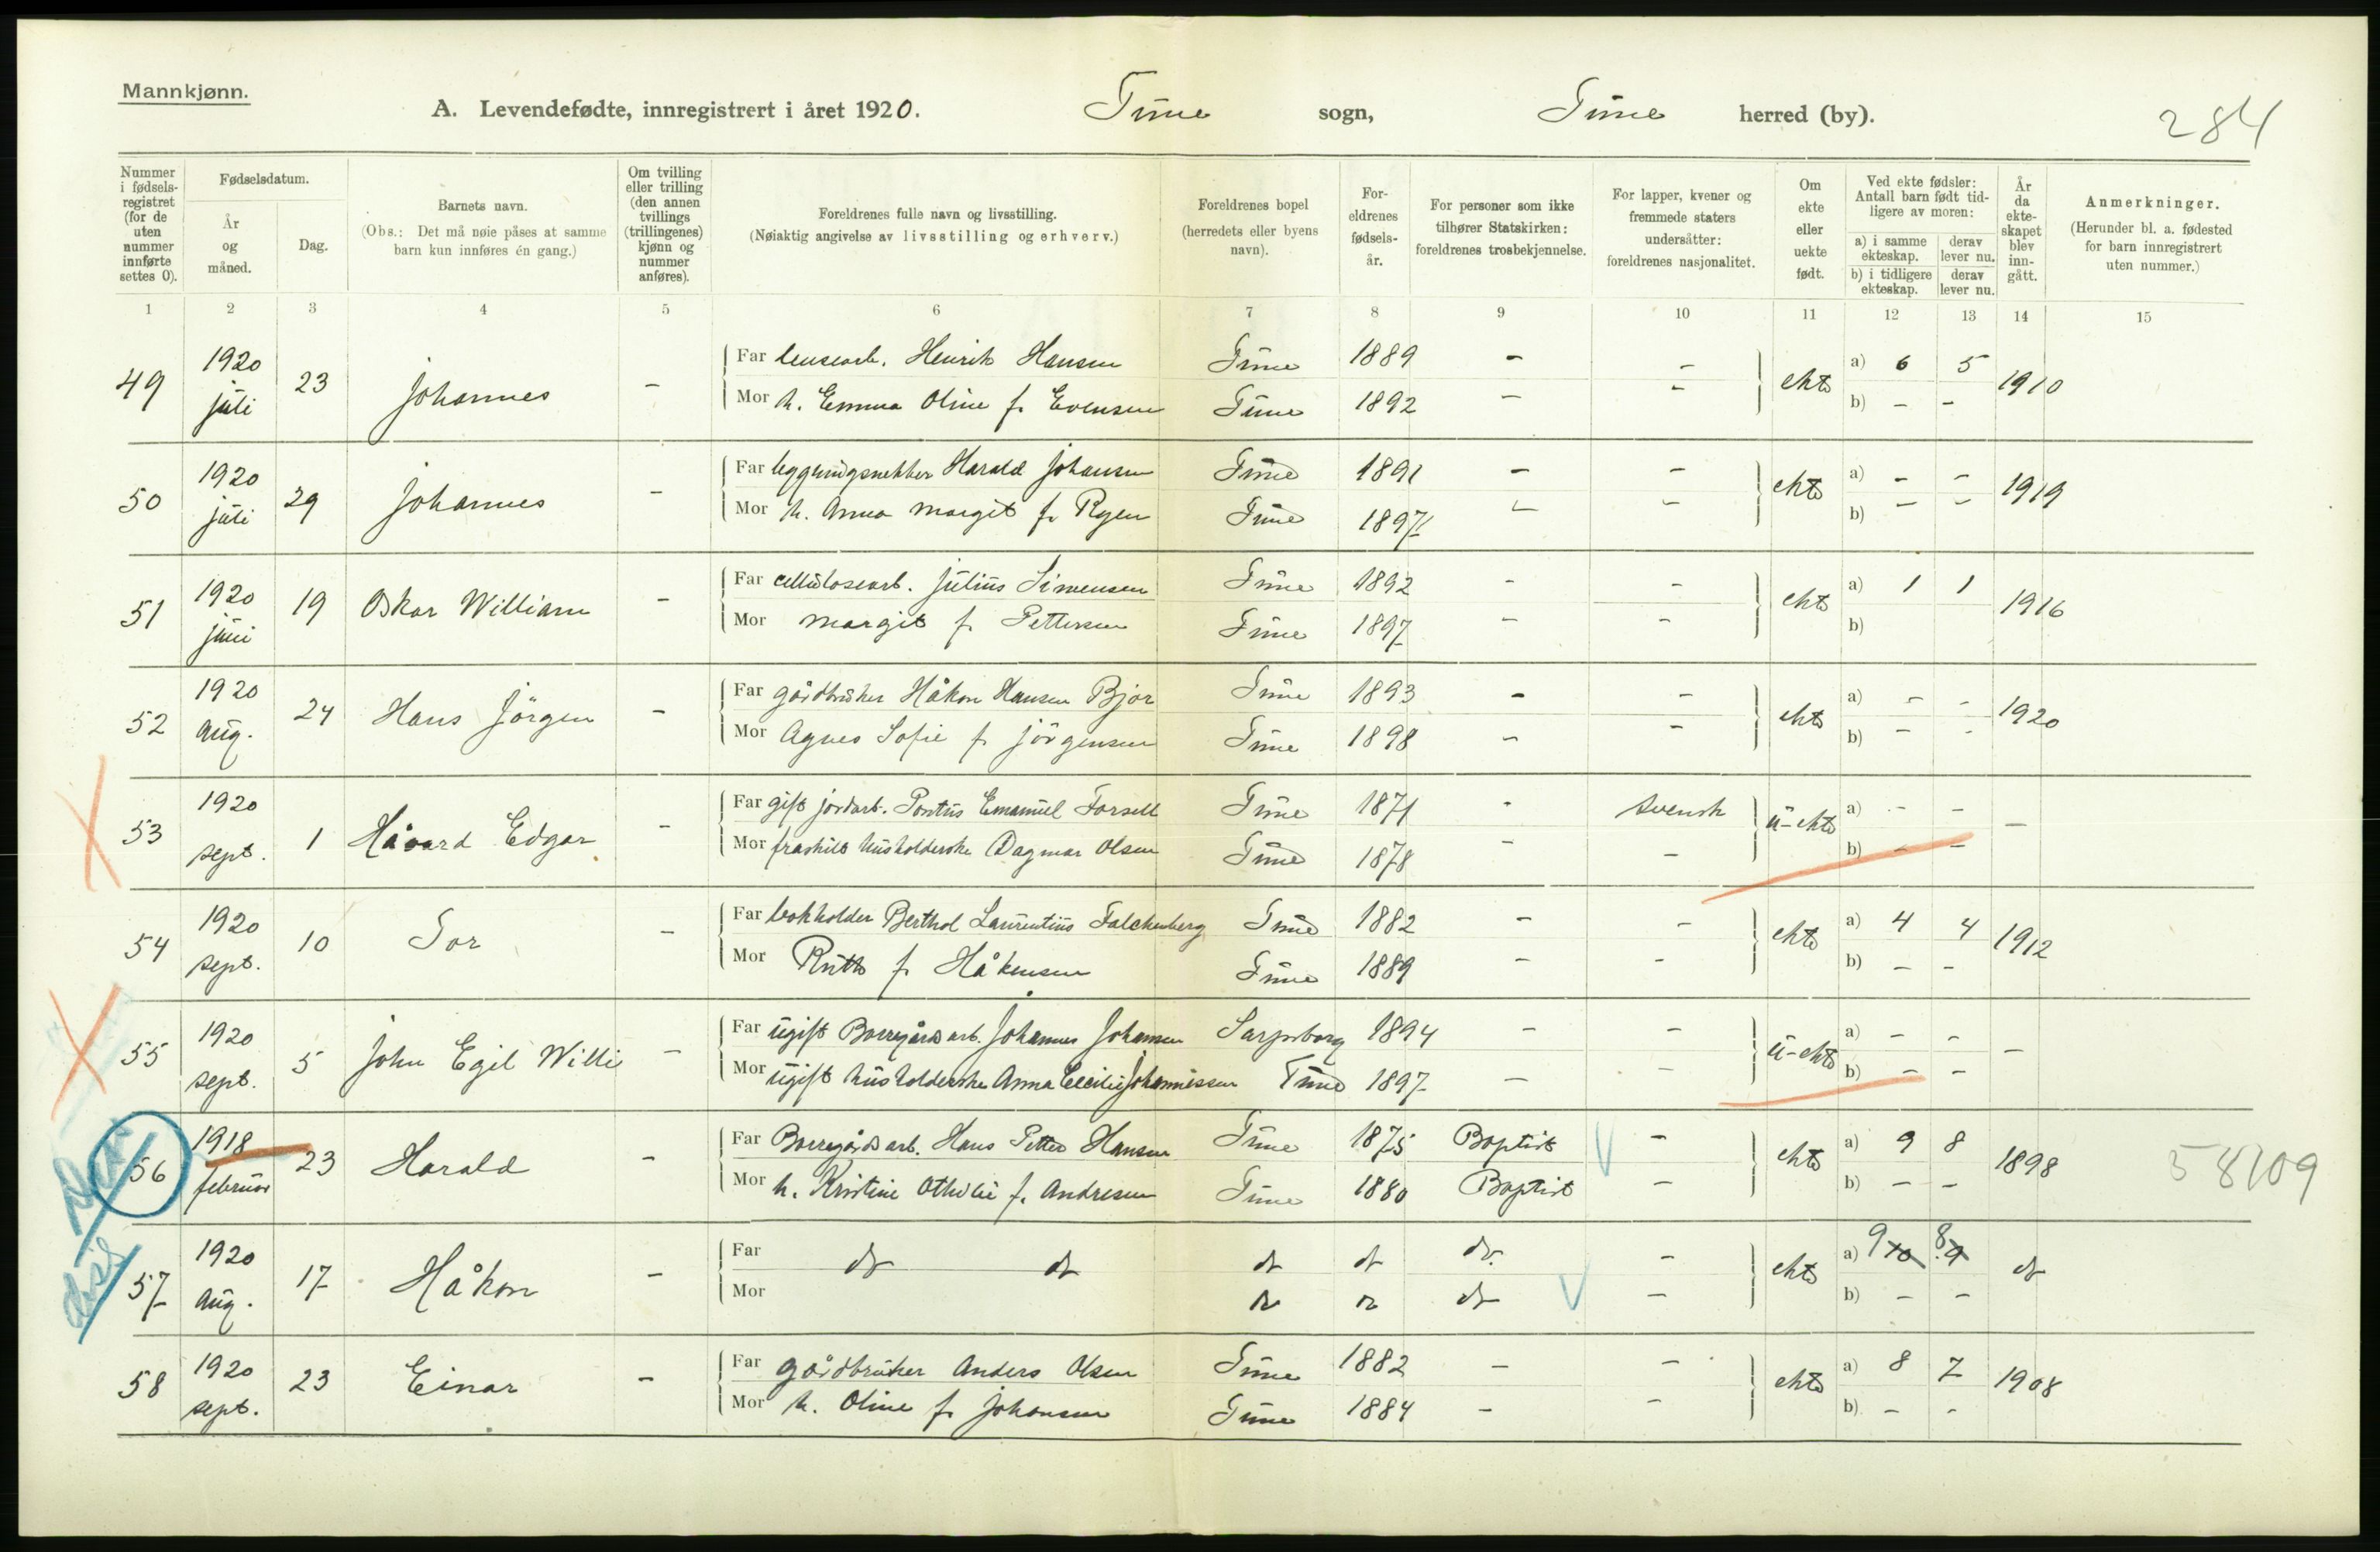 Mannkjønn.
A. Levendefødte, innregistrert i året 1920. Tune sogn, Tune herred (by). 284
Nummer i fødselsregistret (for de uten nummer innførte settes 0).
Fødselsdatum.
År og måned.
Dag.
Barnets navn.
(Obs.: Det må nøie påses at samme barn kun innføres én gang.)
Om tvilling eller trilling (den annen tvillings (trillingenes) kjønn og nummer anføres).
Foreldrenes fulle navn og livsstilling.
(Nøiaktig angivelse av livsstilling og erhverv.)
Foreldrenes bopel (herredets eller byens navn).
Foreldrenes fødselsår.
For personer som ikke tilhører Statskirken: foreldrenes trosbekjennelse.
For lapper, kvener og fremmede staters undersåtter: foreldrenes nasjonalitet.
Om ekte eller uekte født.
Ved ekte fødsler: Antall barn født tidligere av moren:
a) i samme ekteskap. derav lever nu.
b) i tidligere ekteskap. derav lever nu.
År da ekteskapet blev inngått.
Anmerkninger.
(Herunder bl. a. fødested for barn innregistrert uten nummer.)
1 2 3 4 5 6 7 8 9 10 11 12 13 14 15
49 1920 juli 23 Johannes -
Far lensearb. Henrik Hansen Tune 1889 - - ekte a) 6 5 1910
Mor h. Emma Oline f. Evensen Tune 1892 - - b) - -
50 1920 juli 29 Johannes -
Far byggningsnekker Harald Johansen Tune 1891 - - ekte a) - - 1919
Mor h. Anna Margit f. Ryen Tune 1897 - - b) - -
51 1920 juni 19 Oskar William -
Far cellulosearb. Julius Simensen Tune 1892 - - ekte a) 1 1 1916
Mor Margit f. Pettersen Tune 1897 - - b)
52 1920 aug. 24 Hans Jörgen -
Far gårdbruker Håkon Hansen Bjor Tune 1893 - - ekte a) - - 1920
Mor Agnes Sofie f. Jörgensen Tune 1898 - - b) - -
53 1920 sept. 1 Håvard Edgar -
Far gift jordarb. Pontus Emanuel Forsell Tune 1871 - svensk u-ekte a) - - -
Mor fraskilt husholderske Dagmar Olsen Tune 1878 - - b) - -
54 1920 sept. 10 Tor -
Far bokholder Berthol Laurentius Falckenberg Tune 1882 - - ekte a) 4 4 1912
Mor Ruth f. Håkensen Tune 1889 - - b) - -
55 1920 sept. 5 John Egil Willi -
Far ugift Borregårds arb. Johannes Johansen Sarpsborg 1894 - - u-ekte a) - - -
Mor ugift husholderske Anna Cecilie Johannissen Tune 1897 - - b) - -
56 1918 februar 23 Harald -
Far Borregårds arb. Hans Petter Hansen Tune 1875 Baptist - ekte a) 9 8 1898 58109
Mor h. Kristine Othilie f. Andresen Tune 1880 Baptist - b) - -
57 1920 aug. 17 Håkon -
Far do do do do do. - ekte a) 9 10 8 9 do
Mor do do do - b) - -
58 1920 sept. 23 Einar -
Far gårdbruker Anders Olsen Tune 1882 - - ekte a) 8 7 1908
Mor h. Oline f. Johansen Tune 1884 - - b) - -